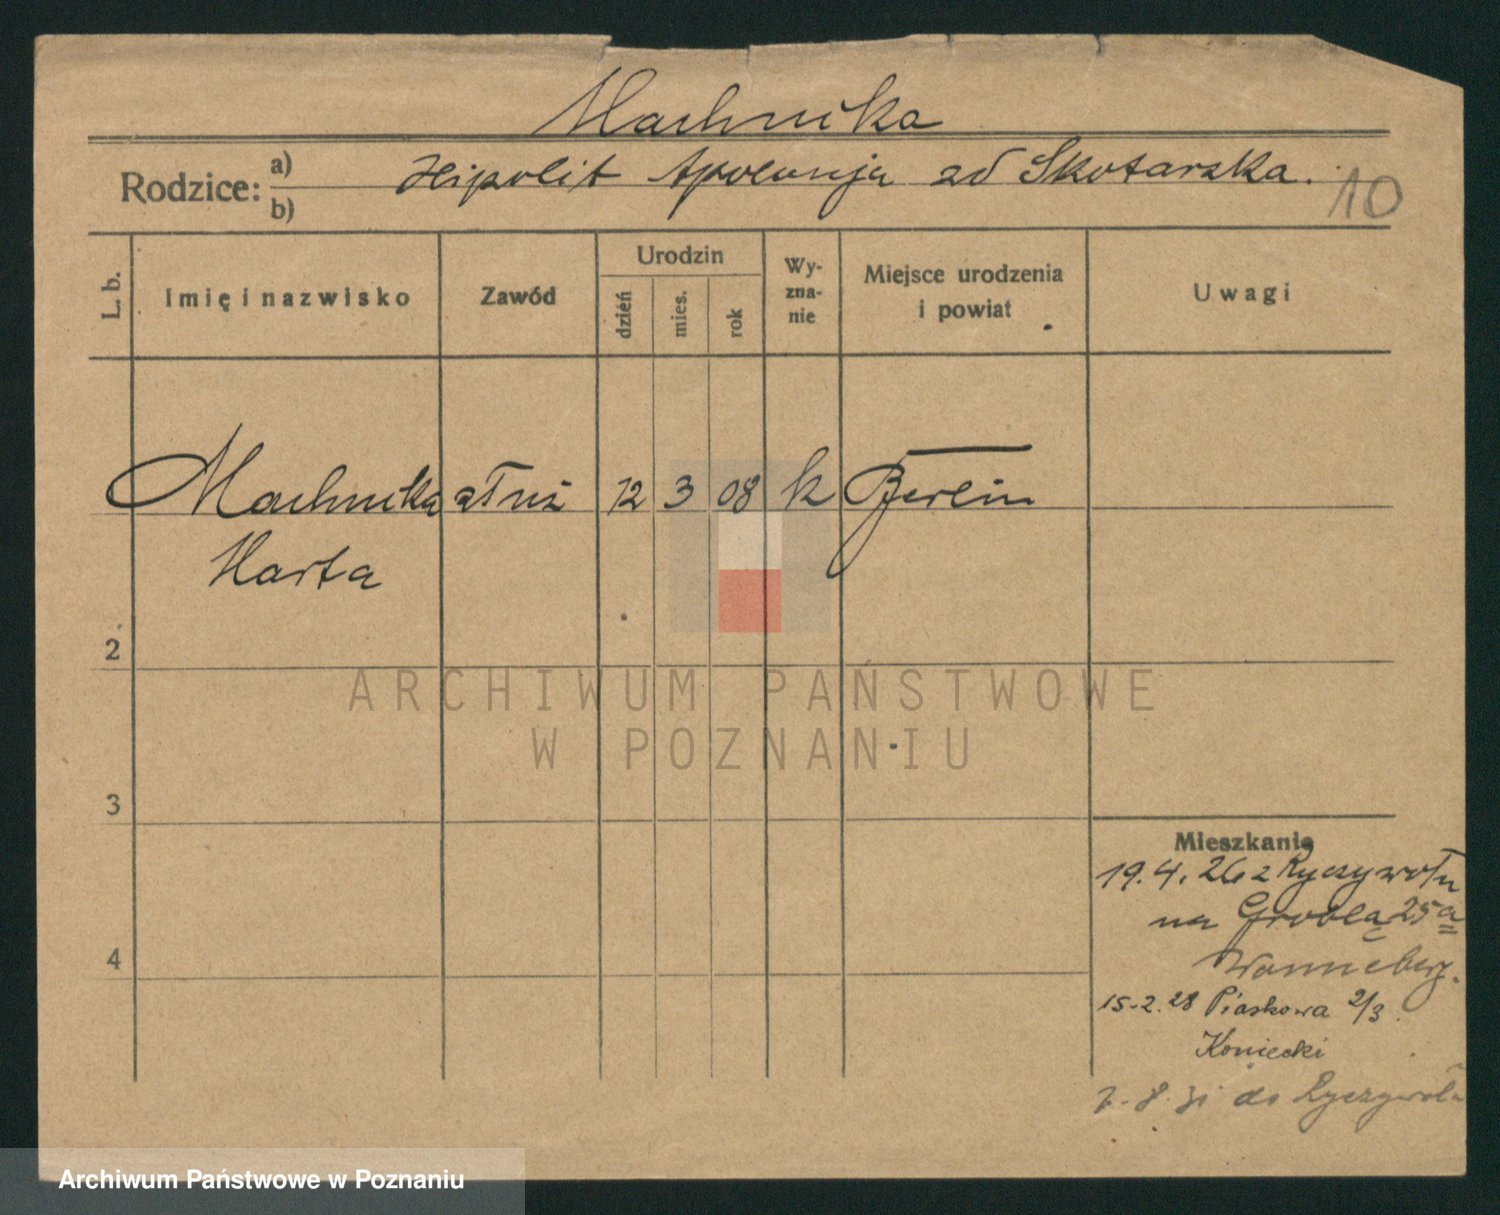 Machnika
Rodzice: a) b) Hipolit Apolonja zd Skotarska.
10
L. b. Imię i nazwisko Zawód Urodzin dzień mies. rok Wy-zna-nie Miejsce urodzenia i powiat Uwagi
Machnika służ 12 3 08 k Berlin
Marta
2
ARCHIWUM PAŃSTWOWE
W POZNANIU
3
Mieszkanie
19.4.26 z Ryczywołu
na Groblą 25a
4
Wanneberg.
15-2.28 Piaskowa 2/3.
Koniecki
7-8.31 do Ryczywołu
Archiwum Państwowe w Poznaniu